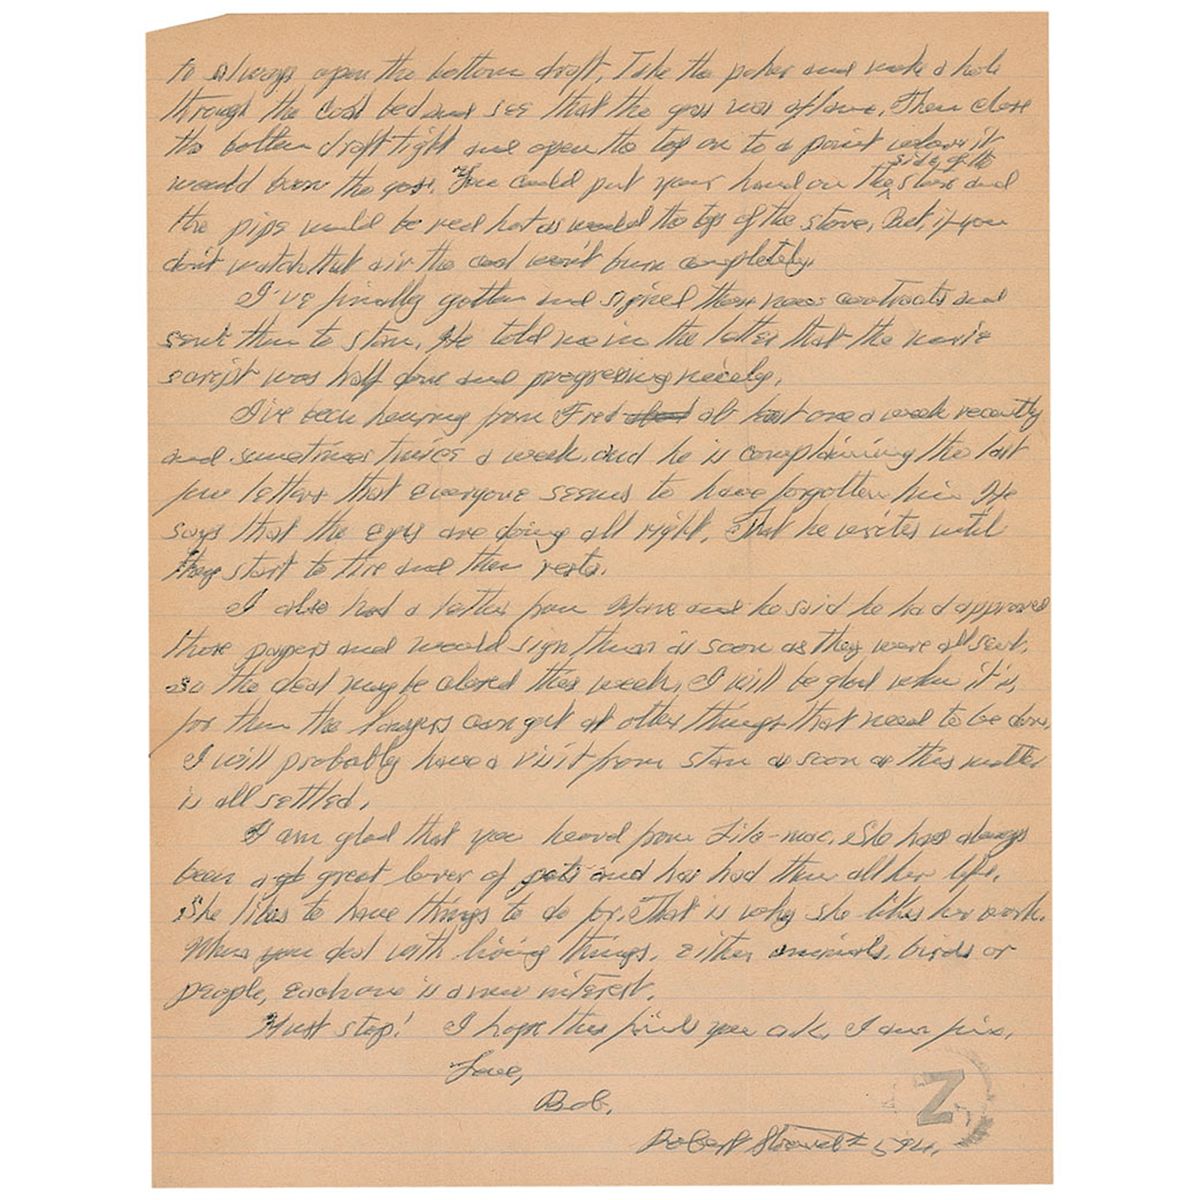 to always open the bottom draft, Take the poker and make a hole
through the coal bed and see that the gas was aflame. Then close
the bottom draft tight and open the top on to a point where it
would burn the gas. You could put your hand on the side of the stove and
the pipe would be red hot as would the top of the stove, But, if you
don't watch that air the coal won't burn completely.
I've finally gotten and signed those new contracts and
sent them to Stan, He told me in the letter that the movie
script was half done and progressing nicely.
I've been hearing from Fred at least once a week recently
and sometimes twice a week. and he is complaining the last
few letters that everyone seems to have forgotten him. He
says that the eyes are doing all right, That he writes until
they start to tire and then rests.
I also had a letter from and he said he had approved
those papers and would sign them as soon as they were all sent.
so the deal may be closed this week, I will be glad when it is,
for then the lawyers can get at other things that need to be done,
I will probably have a visit from Stan as soon as this matter
is all settled,
I am glad that you heard from Lila-mae. She has always
been a great lover of pets and has had them all her life.
She likes to have things to do for. That is why she likes her work.
When you deal with living things, either animals, birds or
people, each one is a new interest.
Must stop! I hope this finds you ok, I am fine,
Love,
Bob,
Robert Stroud # 594.
Z